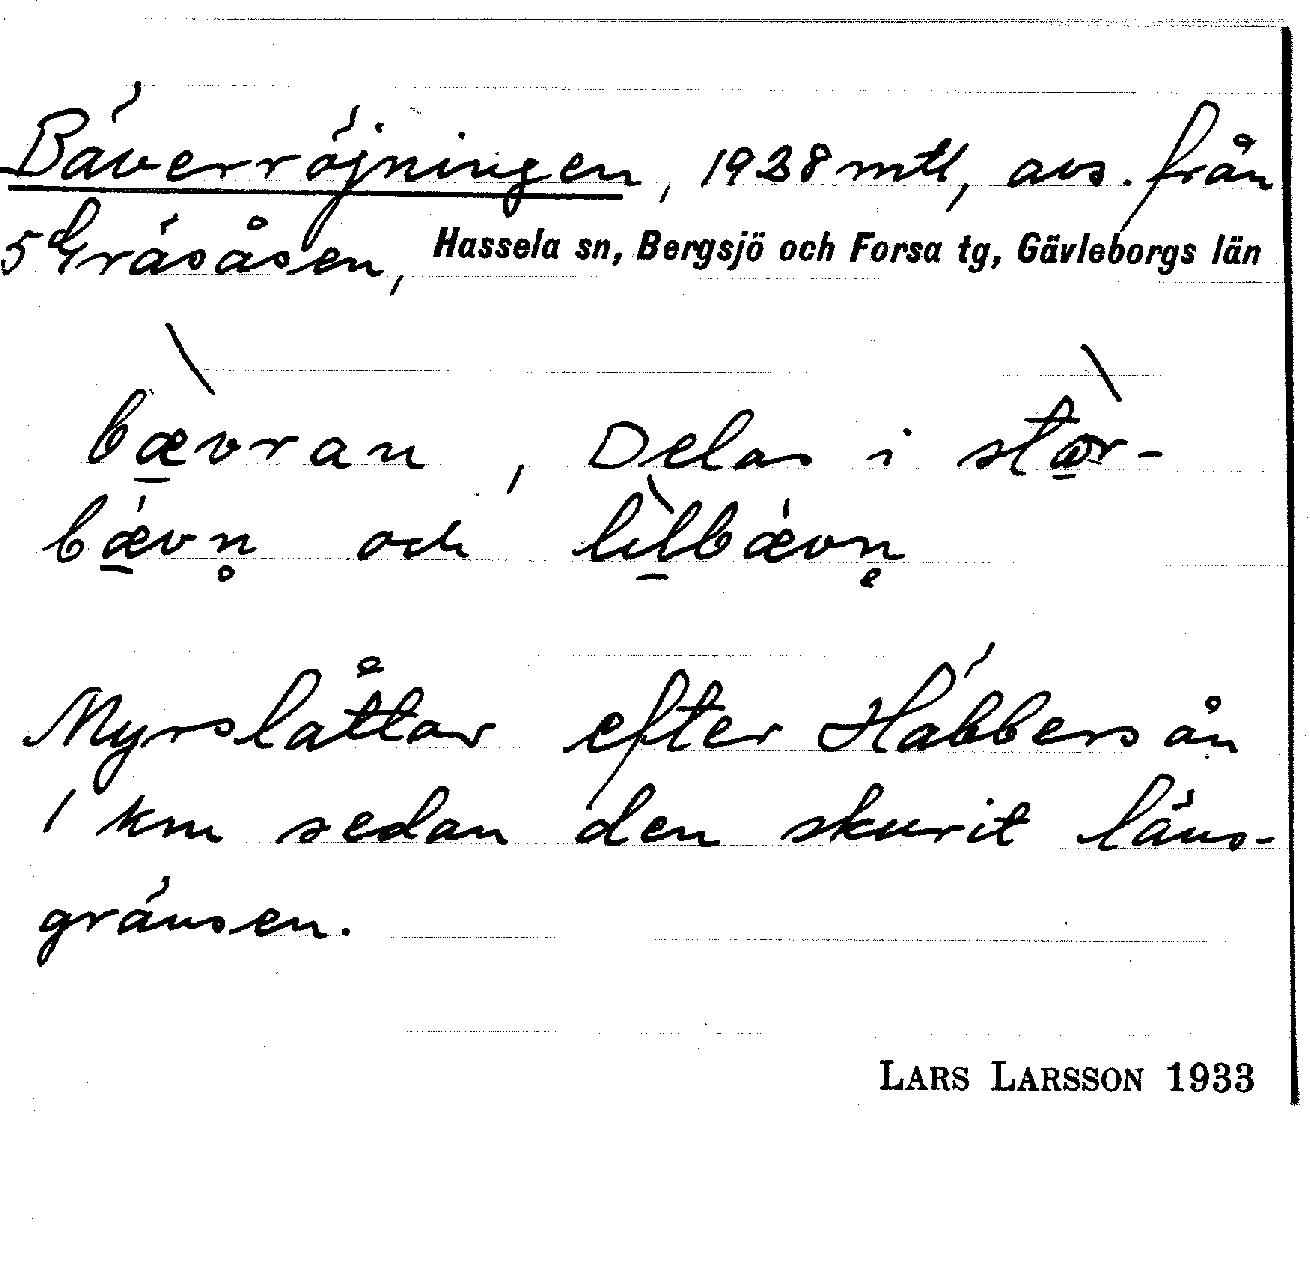 Bäverröjningen, 1928 mtl, avs. från
5 Gräsåsen, Hassela sn, Bergsjö och Forsa tg, Gävleborgs län
bæ̱̀vran, Delas i stæ̱̀r-
bǽ̱vn̥ och lì̱lbǽvn̥
Myrslåttar efter Häbbersån
1 km sedan den skurit läns-
gränsen.
LARS LARSSON 1933